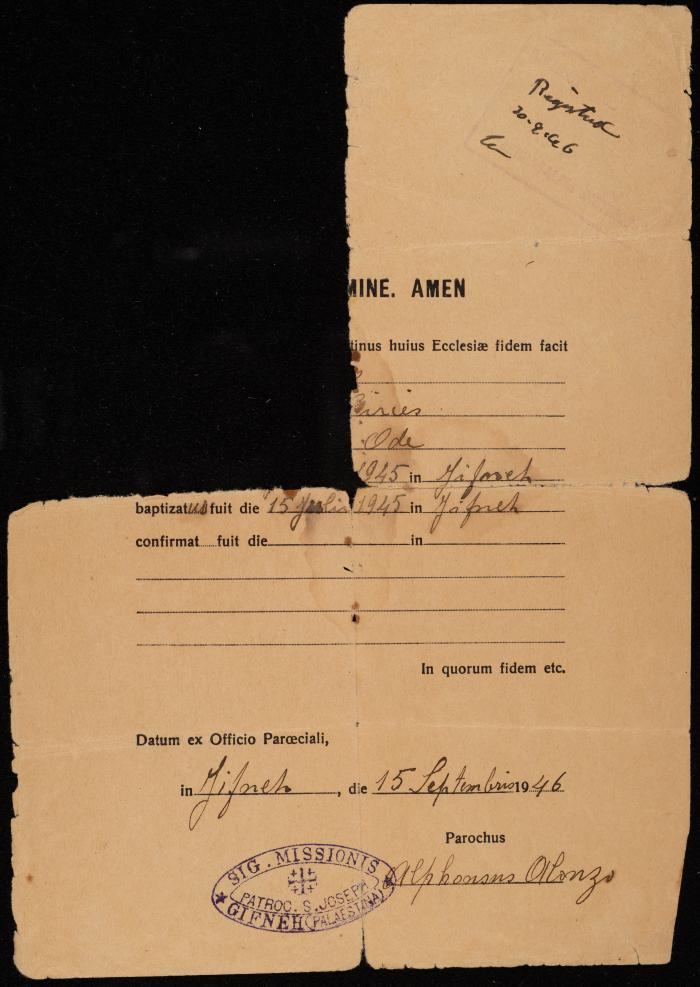 Registered
20-9-46
MINE. AMEN
tinus huius Ecclesiæ fidem facit
Ode
1945 in Jifneh
baptizatus fuit die 15 Julii 1945 in Jifneh
confirmat fuit die in
In quorum fidem etc.
Datum ex Officio Parœciali,
in Jifneh, die 15 Septembris 1946
Parochus
Alphonsus Alonzo
SIG. MISSIONIS
PATROC. S. JOSEPH
GIFNEH (PALAESTINA)